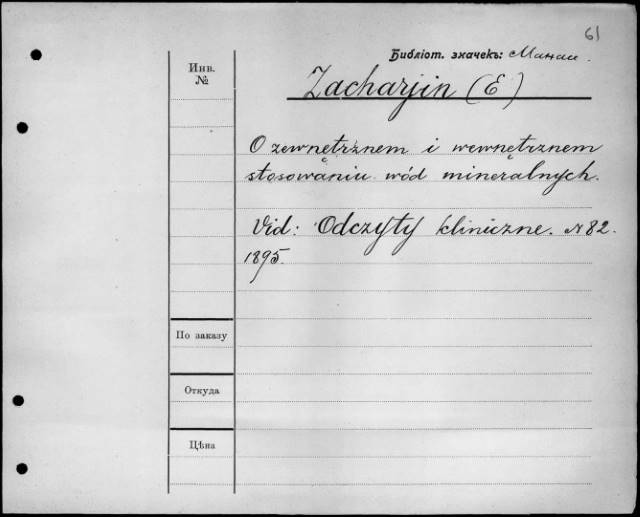 61
Библіот. значекъ:
Инв.
№
Zacharjin (E)
O zewnętrznem i wewnętrznem
stosowaniu wód mineralnych.
Vid: Odczyty kliniczne. № 82.
1895.
По заказу
Откуда
Цѣна